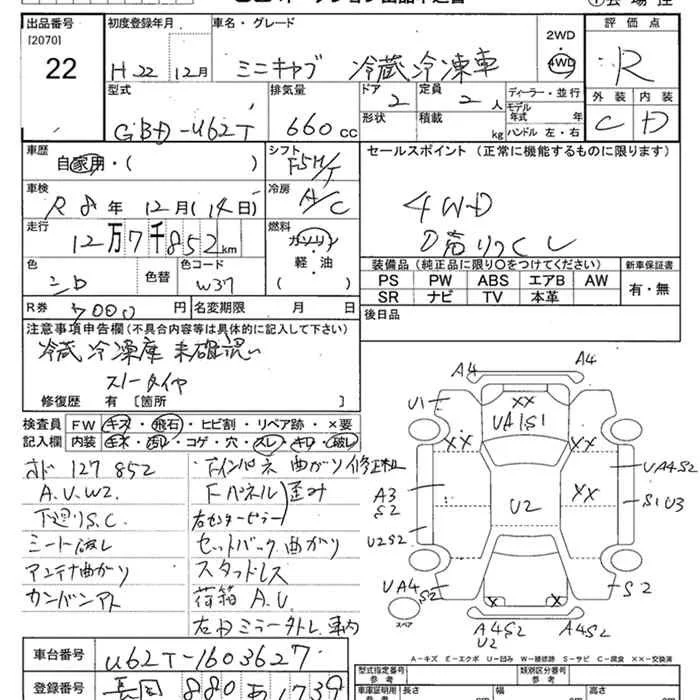 出品番号
[2070]
22
初度登録年月
H22 12月
車名・グレード
ミニキャブ 冷蔵冷凍車
2WD
・
4WD
評価点
R
外装 内装
C D
型式
GBD-U62T
排気量
660 cc
ドア
2
定員
2 人
形状
積載
kg
ディーラー・並行
モデル年式 年
ハンドル 左・右
車歴
自家用・( )
シフト
F5M/T
車検
R8年 12月(14日)
冷房
A/C
走行
12万7千852km
燃料
ガソリン
軽・油
色
シロ
色替
色コード
W37
R券 7000 円
名変期限 月 日
セールスポイント(正常に機能するものに限ります)
4WD
装備品(純正品に限り○をつけてください)
PS PW ABS エアB AW
SR ナビ TV 本革
新車保証書
有・無
後日品
注意事項申告欄(不具合内容等は具体的に記入して下さい)
冷蔵冷凍庫 未確認
スノータイヤ
修復歴 有 [箇所 ]
検査員記入欄
FW キズ・飛石・ヒビ割・リペア跡・×要
内装 キズ・汚れ・コゲ・穴・スレ・キレ・破レ
オド 127852
A.U.W2.
下廻りS.C.
シート破レ
アンテナ曲がり
カンバンアト
下インパネ曲がり修正
Fパネル 歪み
右センターピラー
セットバック曲がり
スタッドレス
荷箱 A.U.
右Dミラータトレ 車内
A4 A4
U1
XX
UA1S1
XX XX
UA4S2
A3
S2
XX
U2
S1U3
U2S2
UA4
S2
S2
X X
スペア
A4S2
U2
A4S2
A-キズ E-エクボ U-凹み W-補修跡 S-サビ C-腐食 XX-交換済
車台番号
U62T-1603627
登録番号
長岡 880 あ1739
型式指定番号
類別区分番号
参考
長さ cm
幅 cm
高さ cm